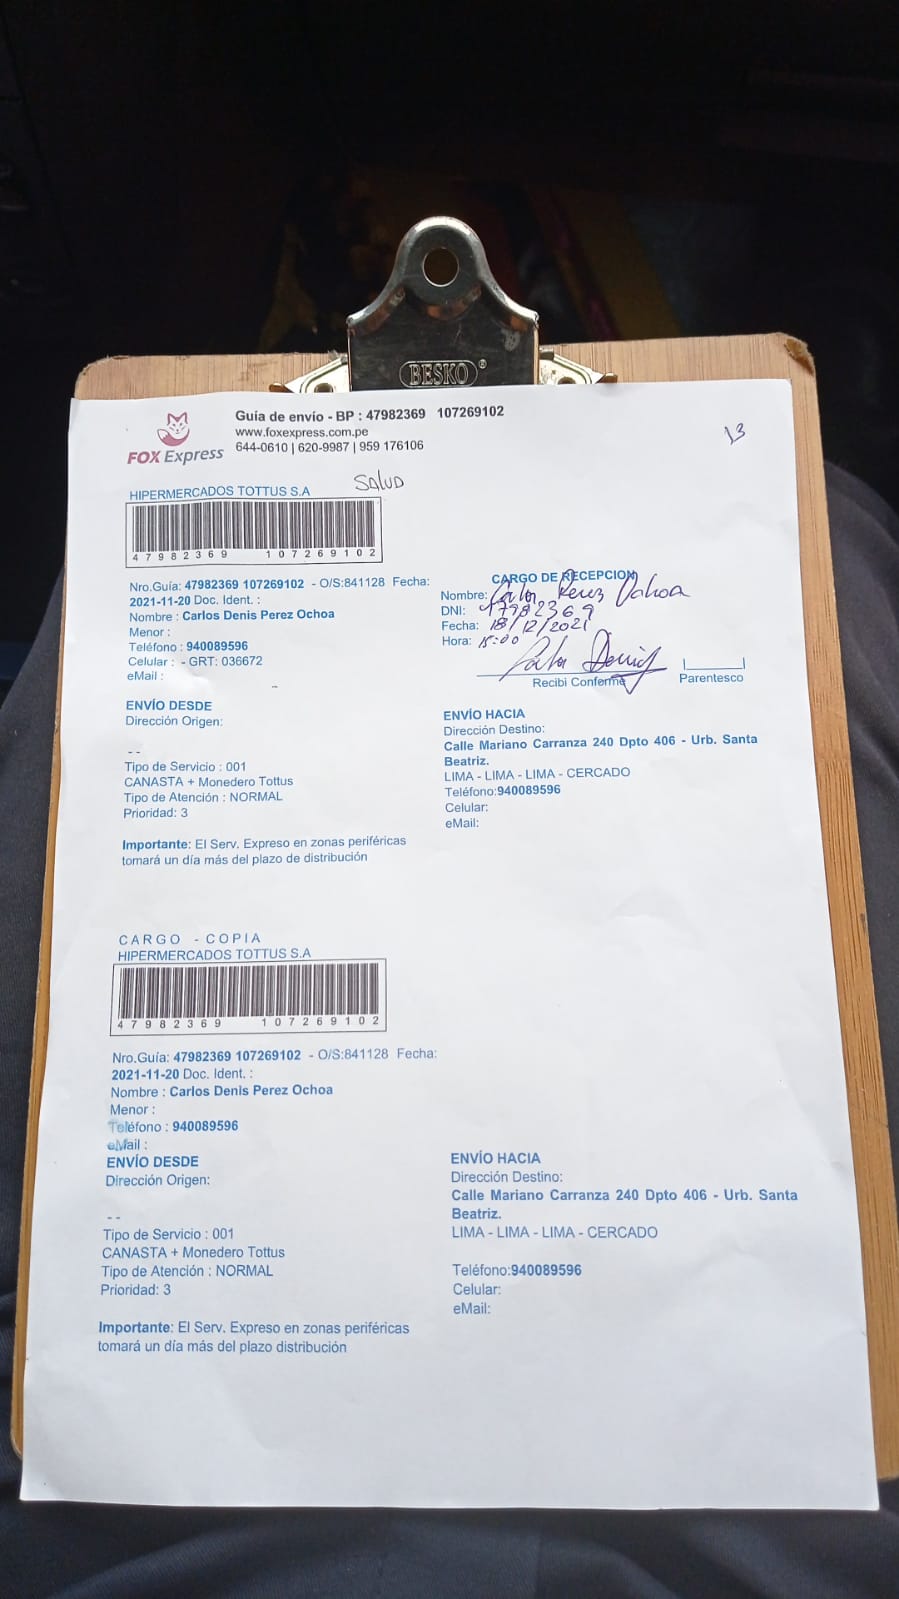 BESKO®
Guía de envío - BP : 47982369 107269102
www.foxexpress.com.pe
644-0610 | 620-9987 | 959 176106
FOX Express
13
SALUD
HIPERMERCADOS TOTTUS S.A
47982369 107269102
Nro.Guía: 47982369 107269102 - O/S:841128 Fecha:
2021-11-20 Doc. Ident. :
Nombre : Carlos Denis Perez Ochoa
Menor :
Teléfono : 940089596
Celular : - GRT: 036672
eMail :
CARGO DE RECEPCION
Nombre: Carlos Perez Ochoa
DNI: 47982369
Fecha: 18/12/2021
Hora: 15:00
Recibi Conforme
Parentesco
ENVÍO DESDE
Dirección Origen:
--
Tipo de Servicio : 001
CANASTA + Monedero Tottus
Tipo de Atención : NORMAL
Prioridad: 3
Importante: El Serv. Expreso en zonas periféricas
tomará un día más del plazo de distribución
ENVÍO HACIA
Dirección Destino:
Calle Mariano Carranza 240 Dpto 406 - Urb. Santa
Beatriz.
LIMA - LIMA - LIMA - CERCADO
Teléfono:940089596
Celular:
eMail:
CARGO - COPIA
HIPERMERCADOS TOTTUS S.A
47982369 107269102
Nro.Guía: 47982369 107269102 - O/S:841128 Fecha:
2021-11-20 Doc. Ident. :
Nombre : Carlos Denis Perez Ochoa
Menor :
Teléfono : 940089596
eMail :
ENVÍO DESDE
Dirección Origen:
--
Tipo de Servicio : 001
CANASTA + Monedero Tottus
Tipo de Atención : NORMAL
Prioridad: 3
Importante: El Serv. Expreso en zonas periféricas
tomará un día más del plazo distribución
ENVÍO HACIA
Dirección Destino:
Calle Mariano Carranza 240 Dpto 406 - Urb. Santa
Beatriz.
LIMA - LIMA - LIMA - CERCADO
Teléfono:940089596
Celular:
eMail: